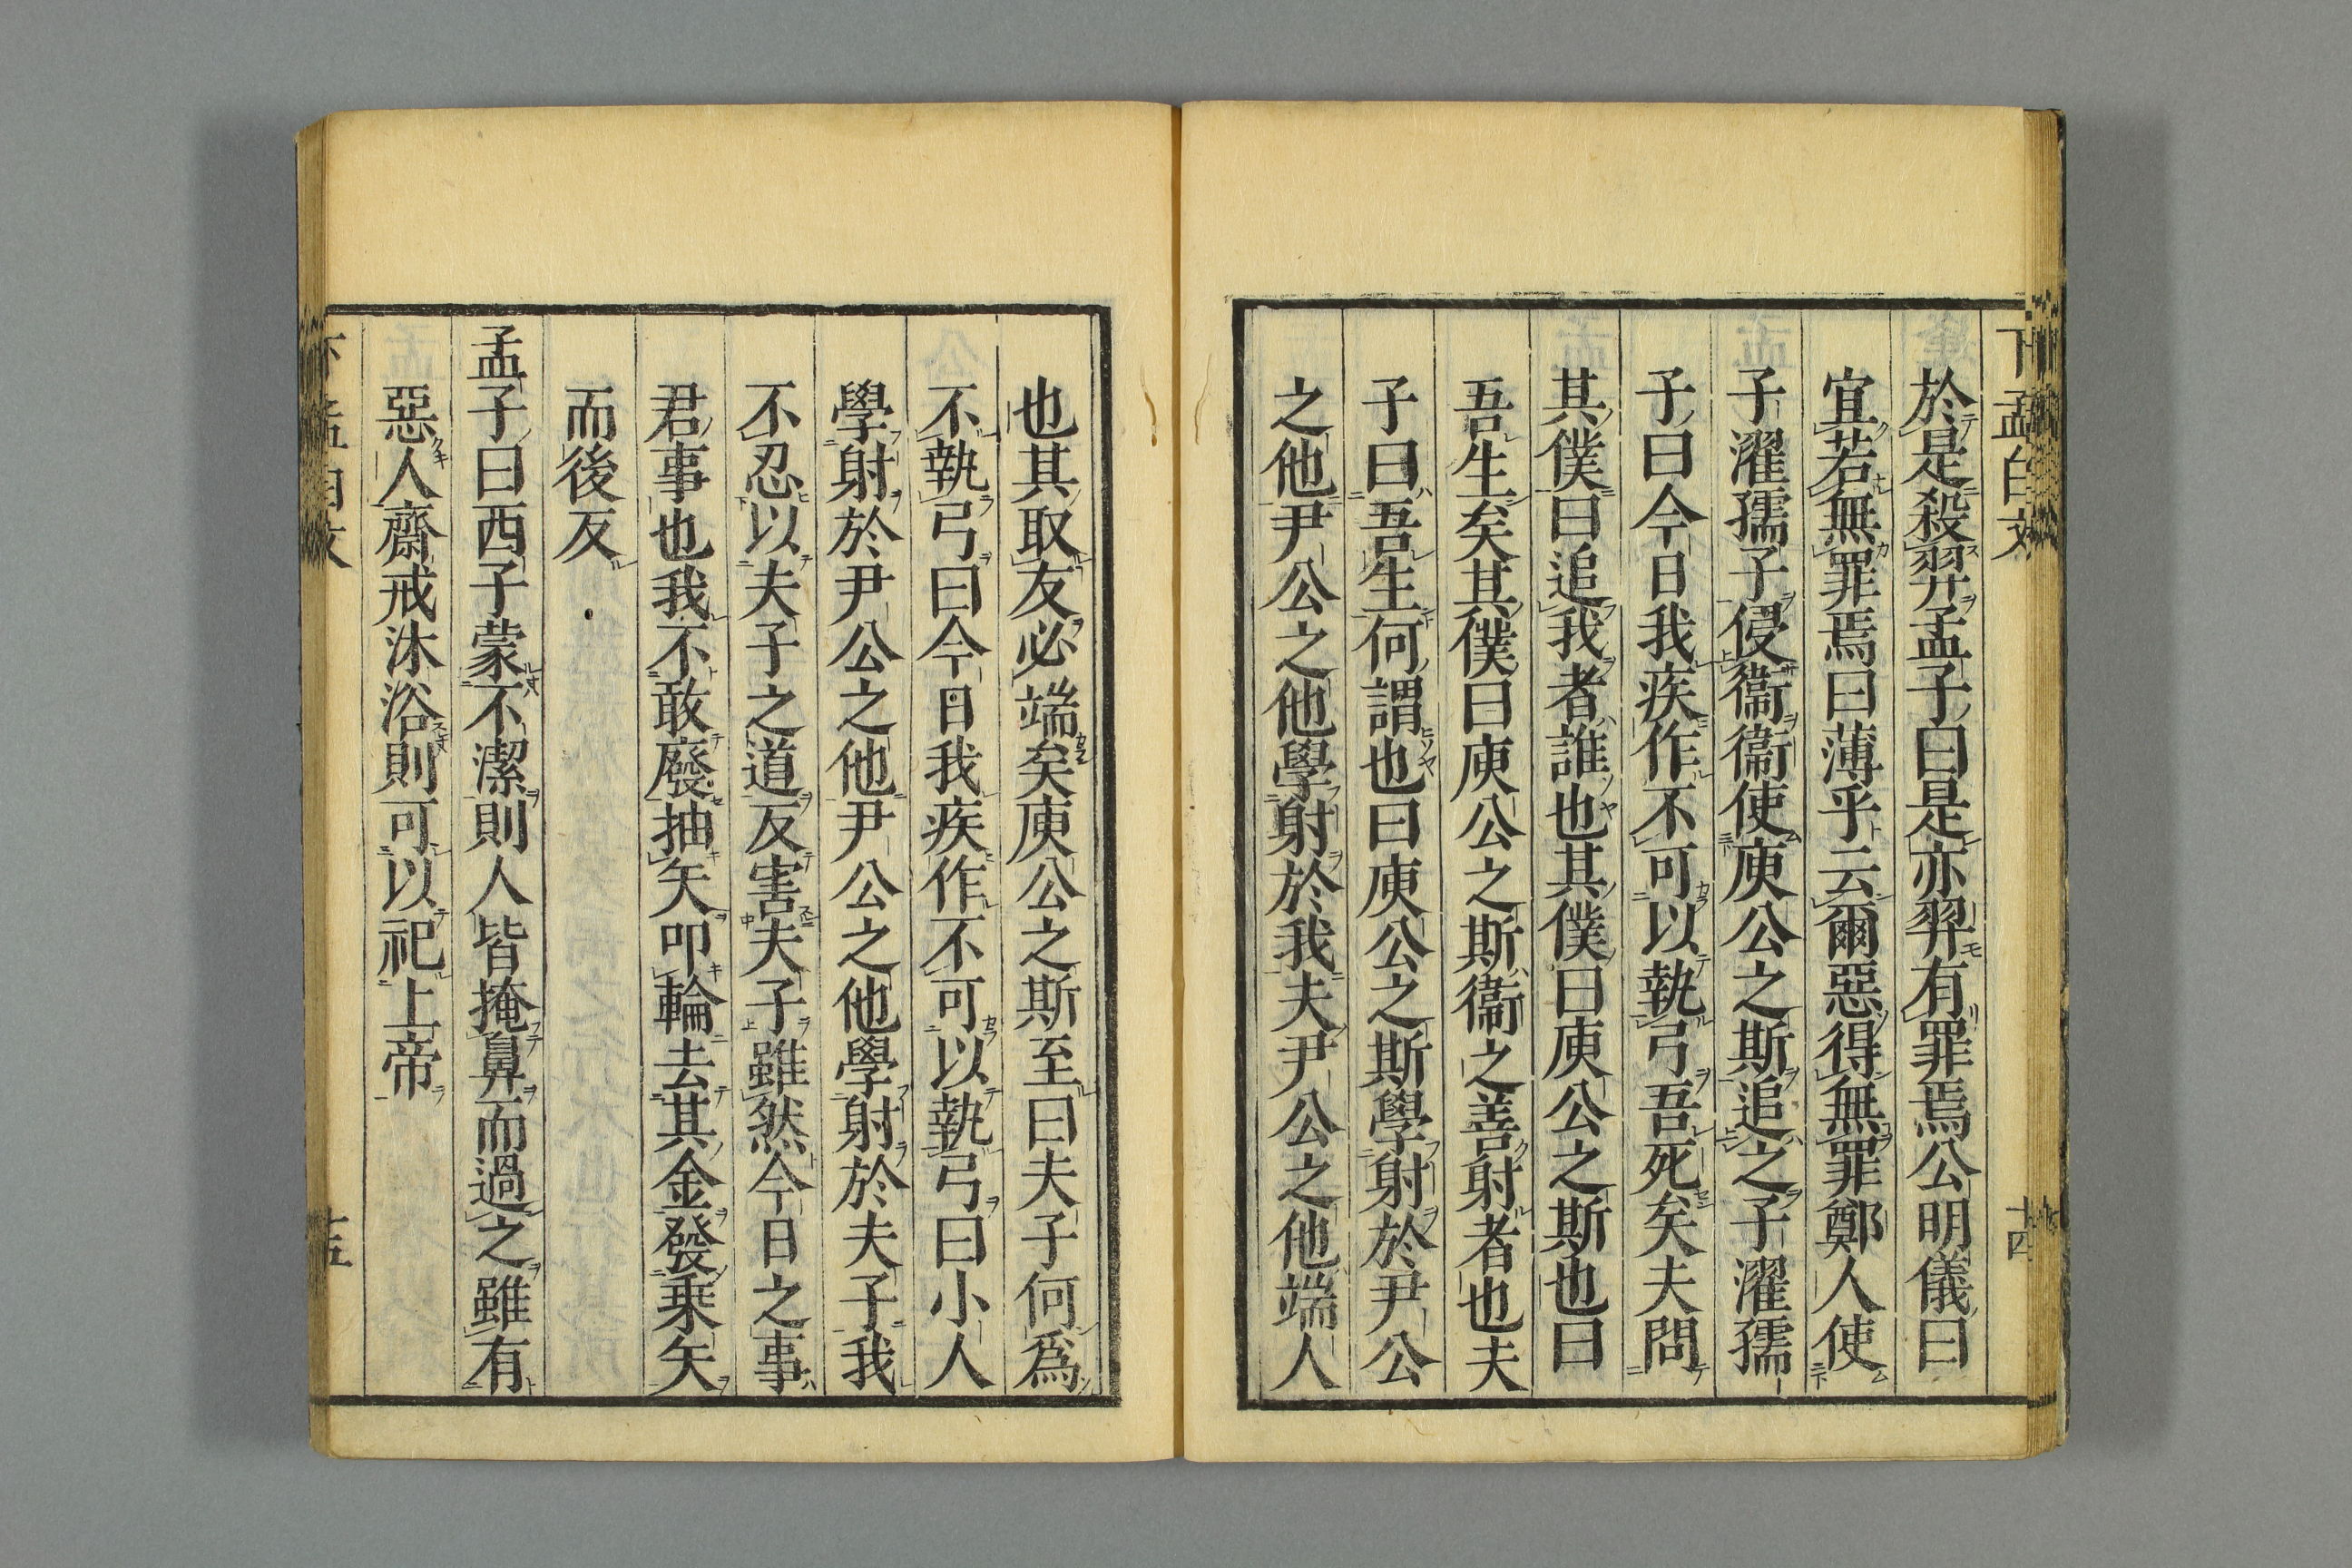 下孟白文
十四
於是殺羿孟子曰是亦羿有罪焉公明儀曰
宜若無罪焉曰薄乎云爾惡得無罪鄭人使
子濯孺子侵衞衞使庾公之斯追之子濯孺
子曰今日我疾作不可以執弓吾死矣夫問
其僕曰追我者誰也其僕曰庾公之斯也曰
吾生矣其僕曰庾公之斯衞之善射者也夫
子曰吾生何謂也曰庾公之斯學射於尹公
之他尹公之他學射於我夫尹公之他端人
也其取友必端矣庾公之斯至曰夫子何爲
不執弓曰今日我疾作不可以執弓曰小人
學射於尹公之他尹公之他學射於夫子我
不忍以夫子之道反害夫子雖然今日之事
君事也我不敢廢抽矢叩輪去其金發乗矢
而後反
孟子曰西子蒙不潔則人皆掩鼻而過之雖有
惡人齋戒沐浴則可以祀上帝